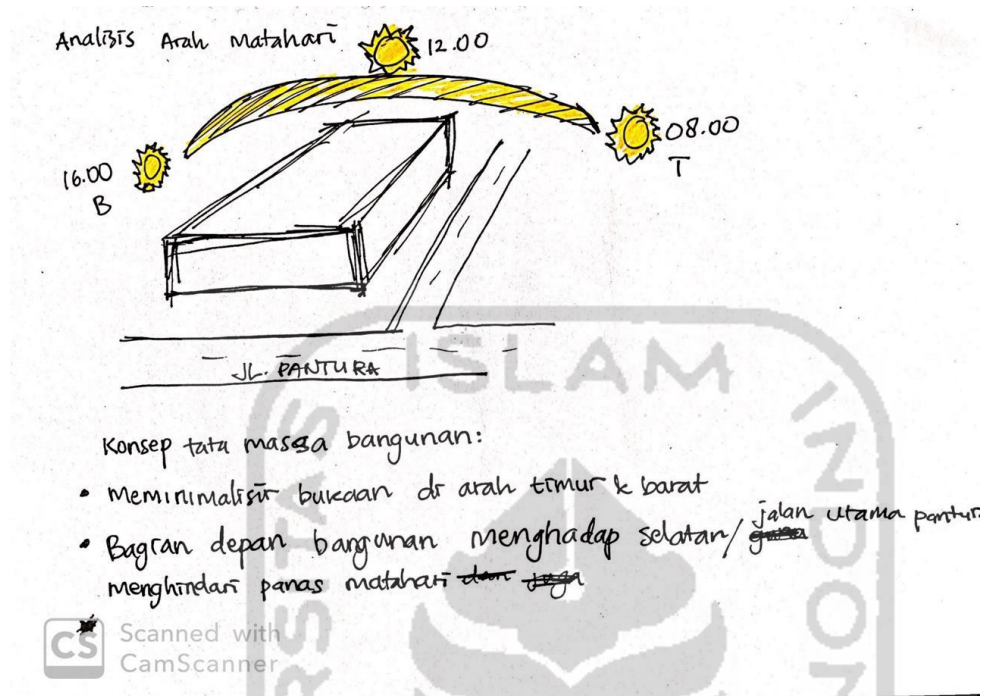 Analisis Arah Matahari
12.00
08.00
T
16.00
B
JL. PANTURA
Konsep tata massa bangunan:
• Meminimalisir bukaan di arah timur & barat
• Bagian depan bangunan menghadap selatan/ jalan utama pantura
menghindari panas matahari dan juga
CS Scanned with
CamScanner
ISLAM
INDON
RSITAS